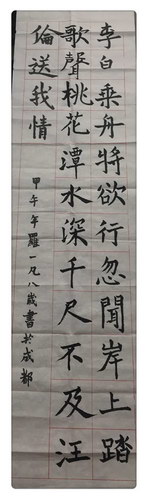 李白乘舟將欲行忽聞岸上踏
歌聲桃花潭水深千尺不及汪
倫送我情
甲午年羅一凡八歲書於成都